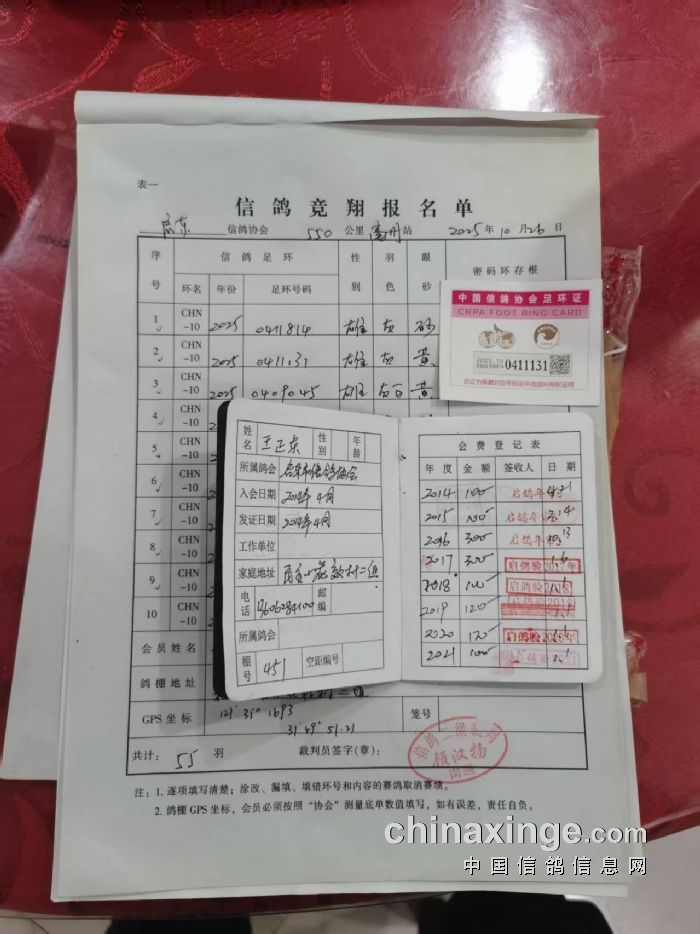 表一
信鸽竞翔报名单
启东 信鸽协会 550 公里 亳州 站 2025年10月26日
序号 信鸽足环 性别 羽色 眼砂 密码环存根
环名 年份 足环号码
1 CHN-10 2025 0411814 雄 灰 砂
2 CHN-10 2025 0411131 雄 灰 黄
3 CHN-10 2025 0409045 雄 灰白 黄
4 CHN-10
5 CHN-10
6 CHN-10
7 CHN-10
8 CHN-10
9 CHN-10
10 CHN-10
会员姓名
鸽棚地址
GPS坐标 笼号
31°49" 51.21
共计: 55 羽 裁判员签字(章):
顾汉扬
南通
注:1. 逐项填写清楚;涂改、漏填、填错环号和内容的赛鸽取消赛绩。
2. 鸽棚GPS坐标,会员必须按照“协会”测量底单数值填写,如有误差,责任自负。
中国信鸽协会足环证
CRPA FOOT RING CARD
2025-10
0411131
此证为佩戴对应号码足环信鸽所有权证明
姓名 王正东 性别 年龄
所属鸽会 启东市信鸽协会
入会日期 2014年4月
发证日期 2014年4月
工作单位
家庭地址
电话 邮编
所属鸽会
棚号 451 空距编号
会费登记表
年度 金额 签收人 日期
2014 100
2015 100
2016 300
2017 300
2018 100
2019 120
2020 120
2021 100
chinaxinge.com
中国信鸽信息网